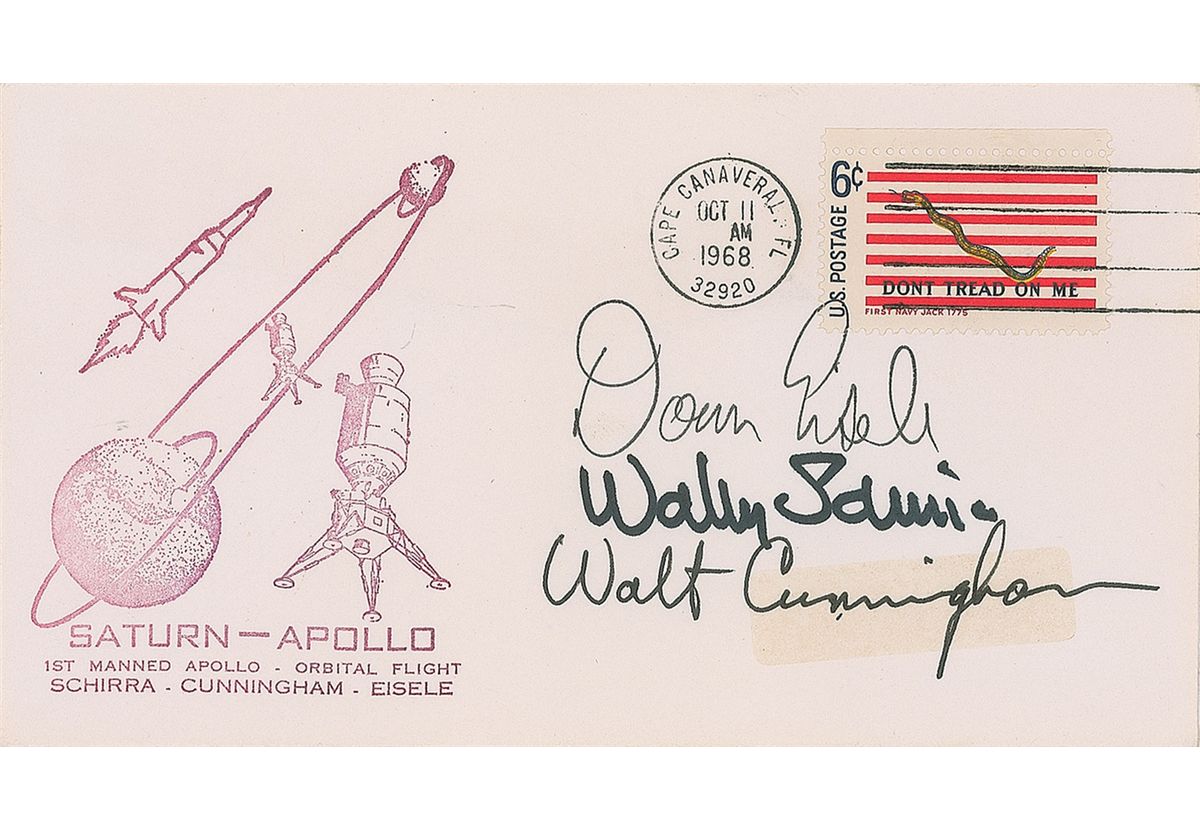 CAPE CANAVERAL, FL
OCT 11
AM
1968
32920
6¢
U.S. POSTAGE
DONT TREAD ON ME
FIRST NAVY JACK 1775
Donn Eisele
Wally Schirra
Walt Cunningham
SATURN — APOLLO
1ST MANNED APOLLO - ORBITAL FLIGHT
SCHIRRA - CUNNINGHAM - EISELE